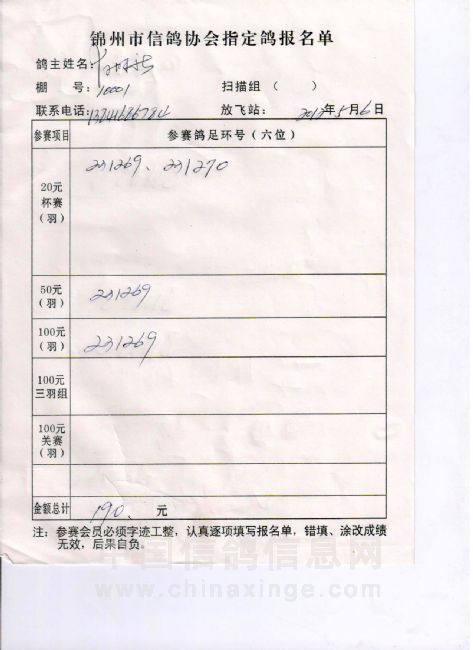 锦州市信鸽协会指定鸽报名单
鸽主姓名:
棚 号: 10001 扫描组 ( )
联系电话: 放飞站: 2012年5月6日
参赛项目 参赛鸽足环号(六位)
20元
杯赛
(羽)
231269、231270
50元
(羽)
231269
100元
(羽)
231269
100元
三羽组
100元
关赛
(羽)
金额总计 190. 元
注: 参赛会员必须字迹工整, 认真逐项填写报名单, 错填、涂改成绩
无效, 后果自负。
中国信鸽信息网
www.chinaxinge.com